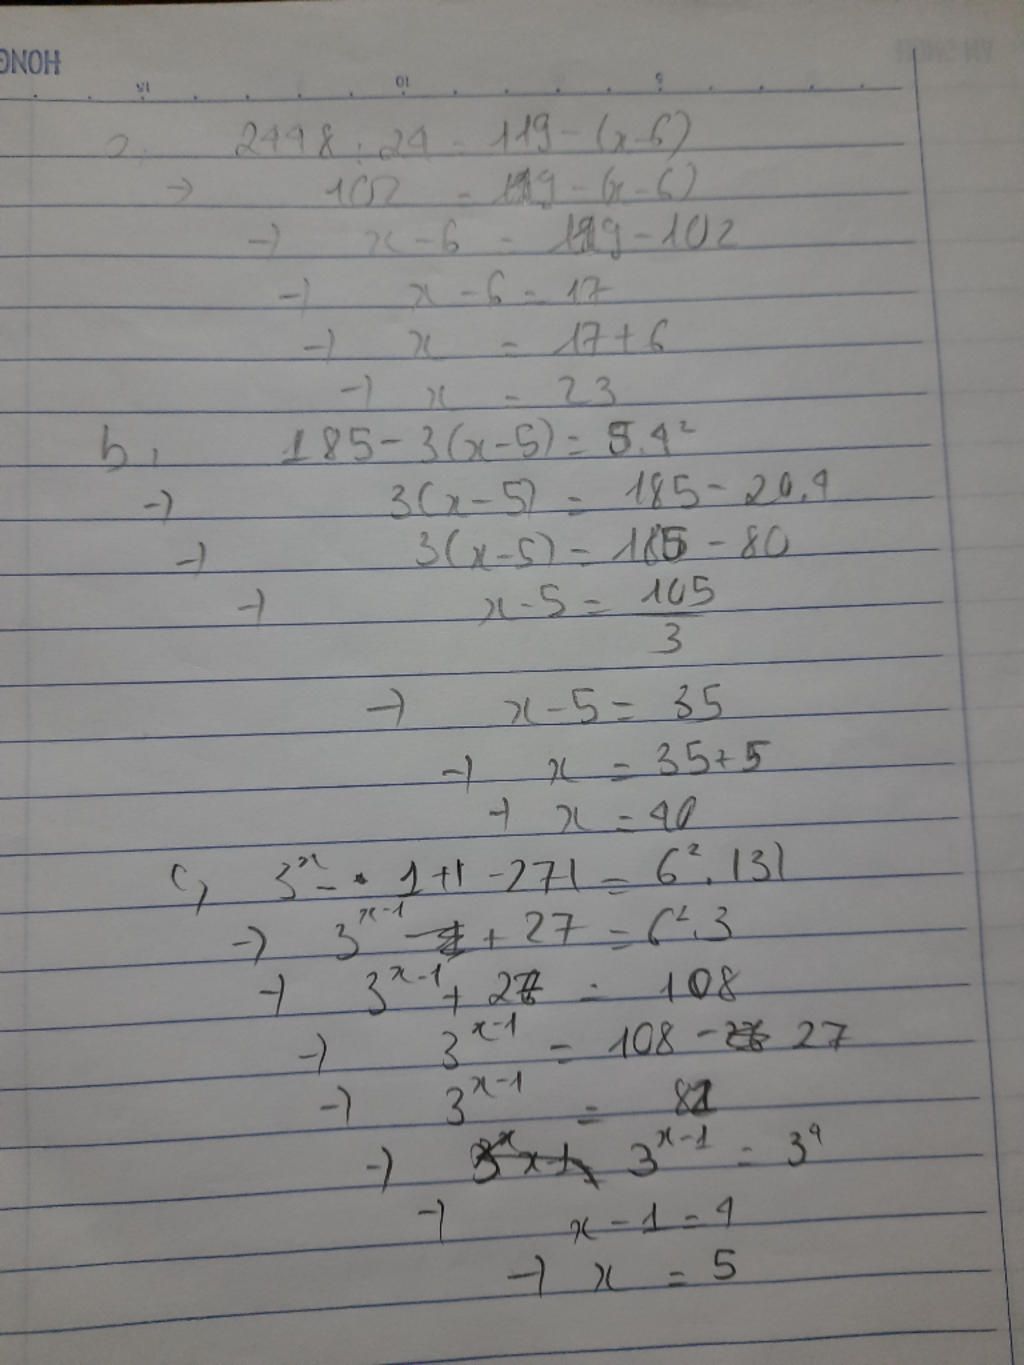 HONG
15 10 5
a, 2448 : 24 = 119 - (x-6)
→ 102 = 119 - (x-6)
→ x - 6 = 119 - 102
→ x - 6 = 17
→ x = 17 + 6
→ x = 23
b, 185 - 3(x-5) = 5.4²
→ 3(x-5) = 185 - 20.4
→ 3(x-5) = 185 - 80
→ x-5 = 105/3
→ x-5 = 35
→ x = 35+5
→ x = 40
c, 3ˣ - 1 + |-27| = 6² . |3|
→ 3ˣ⁻¹ + 27 = 6².3
→ 3ˣ⁻¹ + 27 = 108
→ 3ˣ⁻¹ = 108 - 27
→ 3ˣ⁻¹ = 81
→ 3ˣ⁻¹ = 3⁴
→ x - 1 = 4
→ x = 5